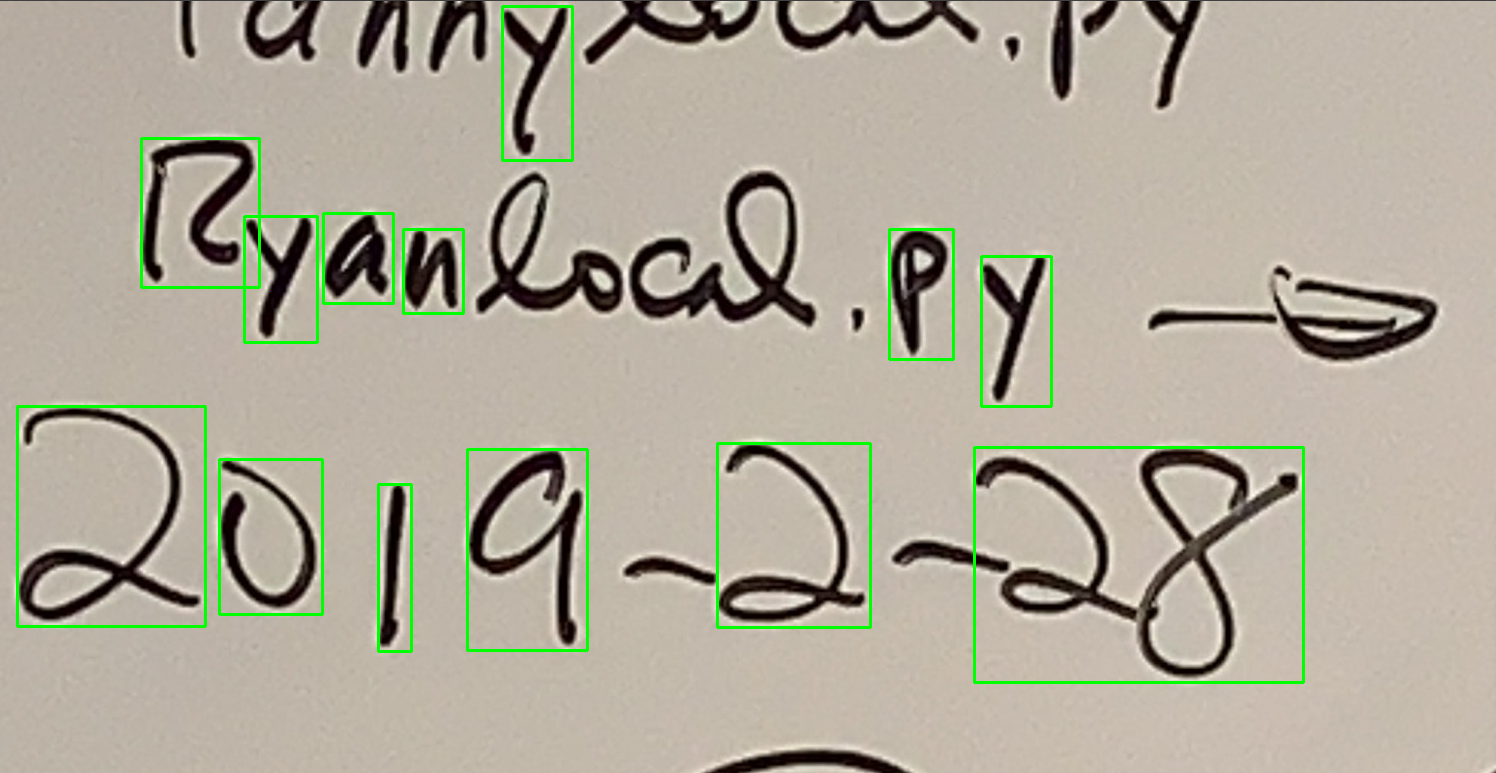 Tannylocal.py
Ryanlocal.py →
2019-2-28